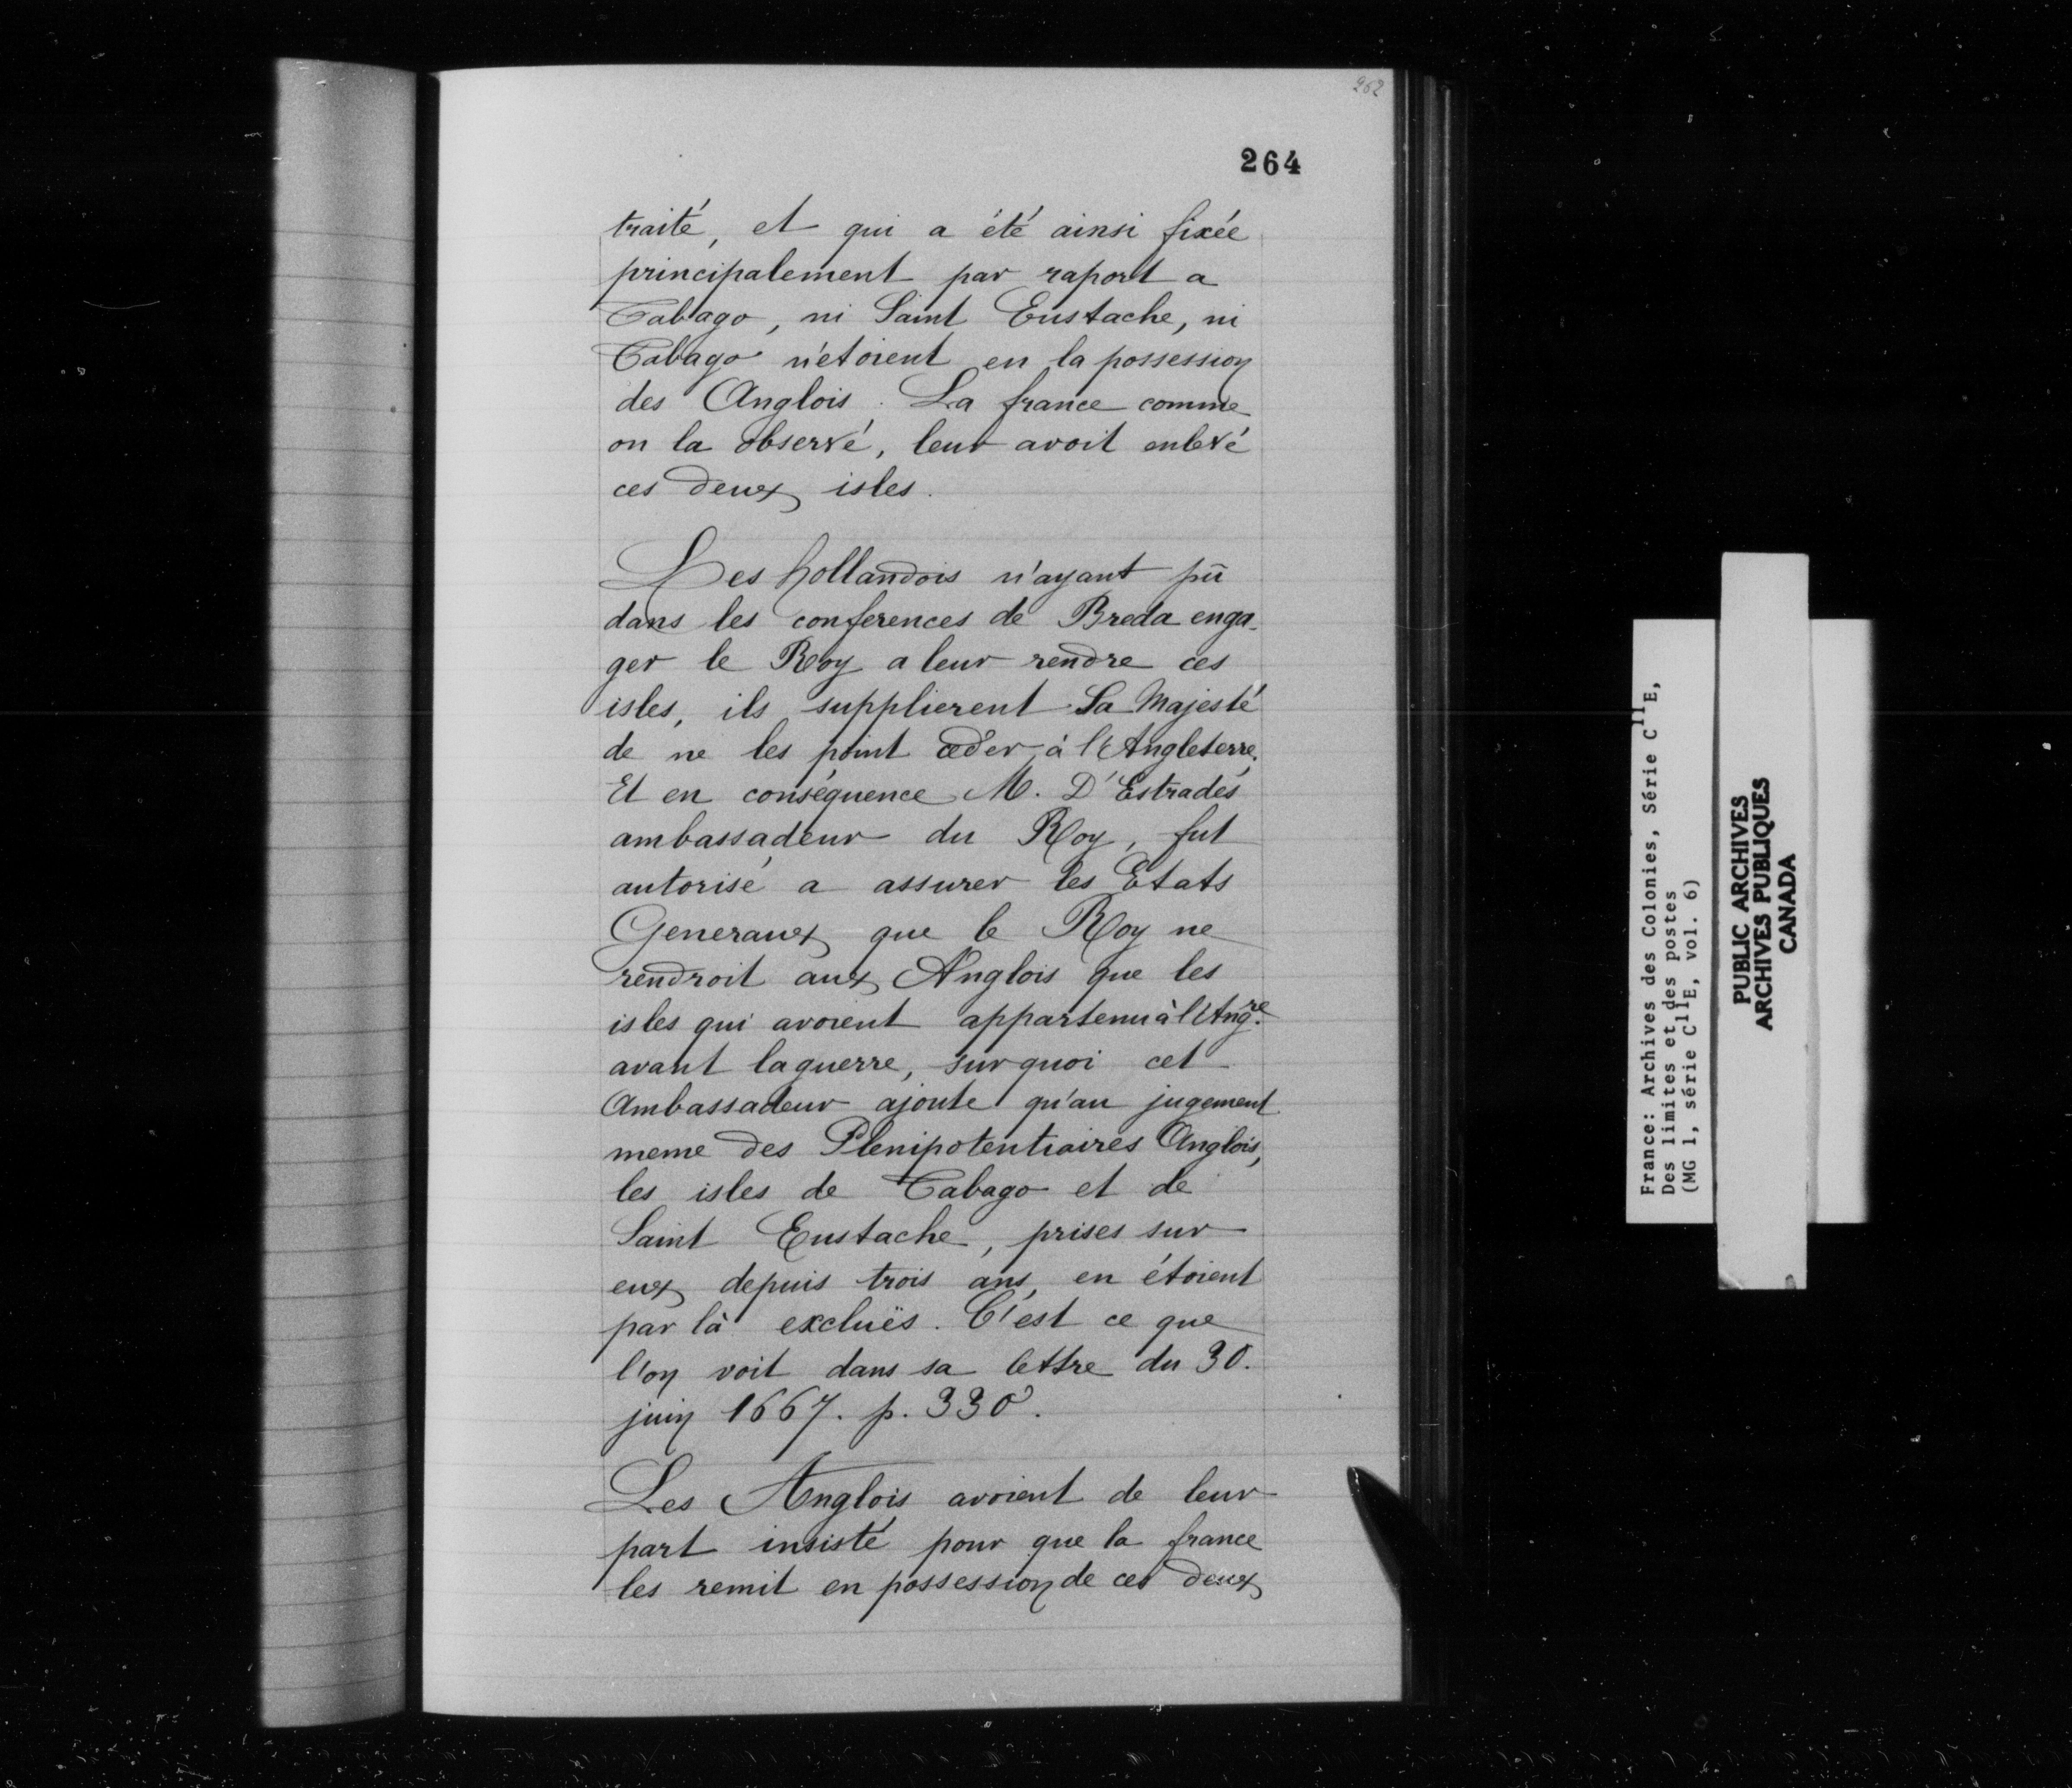 262
264
traité, et qui a été ainsi fixée
principalement par raport a
Tabago, ni Saint Eustache, ni
Tabago n'etoient en la possession
des Anglois. La france comme
on la observé, leur avoit enlevé
ces deux isles.
Les hollandois n'ayant pû
dans les conferences de Breda enga-
ger le Roy a leur rendre ces
isles, ils supplierent Sa Majesté
de ne les point céder à l'Angleterre.
Et en conséquence M. D'Estrades
ambassadeur du Roy, fut
autorisé a assurer les Etats
Generaux que le Roy ne
rendroit aux Anglois que les
isles qui avoient appartenu à l'Angre.
avant la guerre, sur quoi cet
Ambassadeur ajoute qu'au jugement
meme des Plenipotentiaires Anglois,
les isles de Tabago et de
Saint Eustache, prises sur
eux depuis trois ans, en étoient
par là excluës. C'est ce que
l'on voit dans sa lettre du 30.
juin 1667. p. 330.
Les Anglois avoient de leur
part insisté pour que la france
les remit en possession de ces deux
France: Archives des Colonies, Série C11E,
Des limites et des postes
(MG 1, série C11E, vol. 6)
PUBLIC ARCHIVES
ARCHIVES PUBLIQUES
CANADA